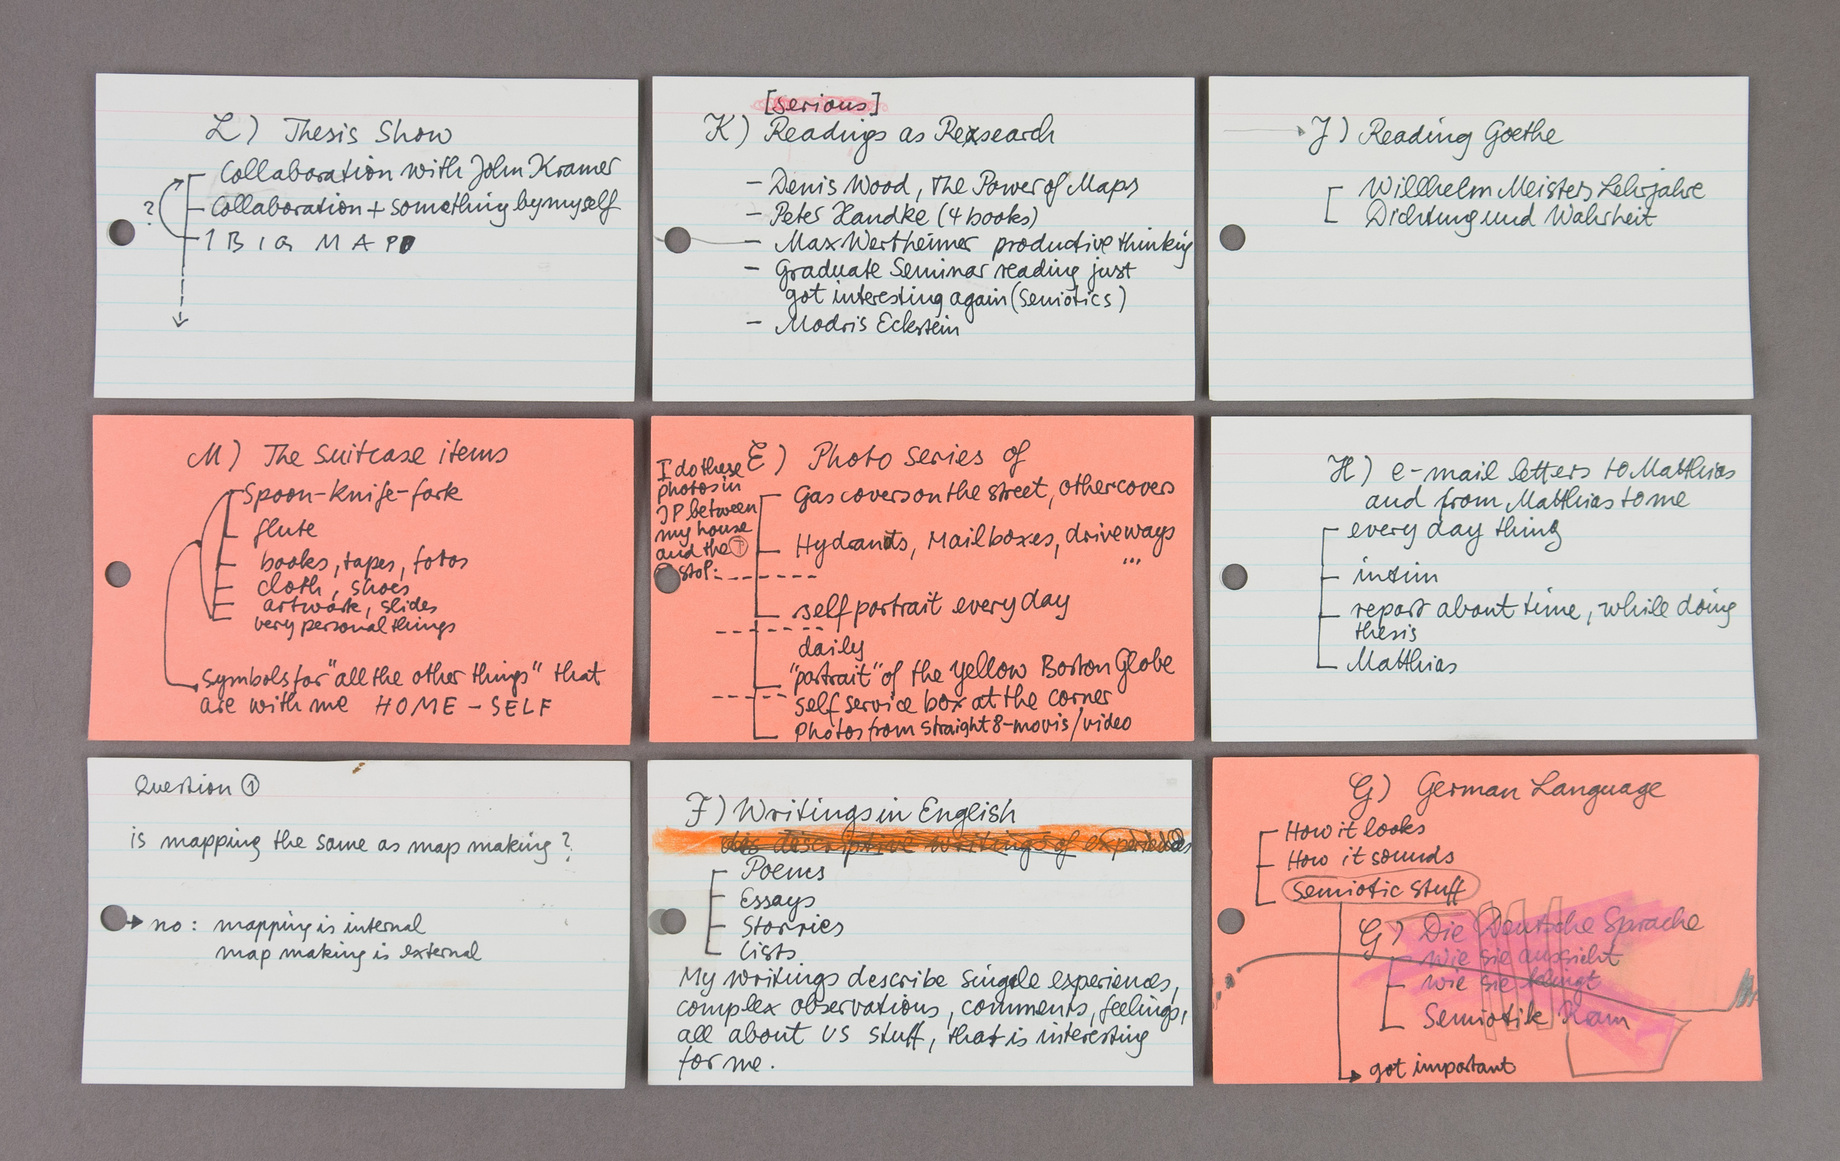 L) Thesis Show
Collaboration with John Kramer
Collaboration + something by myself
?
1 BIG MAP
[serious]
K) Readings as Research
– Denis Wood, The Power of Maps
– Peter Handke (4 books)
– Max Wertheimer productive thinking
– Graduate Seminar reading just
got interesting again (Semiotics)
– Modris Eckstein
J) Reading Goethe
Willhelm Meisters Lehrjahre
Dichtung und Wahrheit
M) The suitcase items
Spoon-knife-fork
flute
books, tapes, fotos
cloth, shoes
artwork, slides
very personal things
Symbols for "all the other things" that
are with me HOME – SELF
I do these
photos in
JP between
my house
and the T
stop:
E) Photo series of
Gas covers on the street, other covers
Hydrants, Mailboxes, driveways
...
self portrait every day
daily
"portrait" of the yellow Boston Globe
self service box at the corner
Photos from straight 8-movis/video
H) e-mail letters to Matthias
and from Matthias to me
every day thing
intim
report about time, while doing
thesis
Matthias
Question 1
is mapping the same as map making?
no: mapping is internal
map making is external
F) Writings in English
descriptive writings of
Poems
Essays
Storries
Lists
My writings describe single experiences,
complex observations, comments, feelings,
all about US stuff, that is interesting
for me.
G) German Language
How it looks
How it sounds
Semiotic stuff
G) Die Deutsche Sprache
wie sie aussieht
wie sie klingt
Semiotik Kram
got important